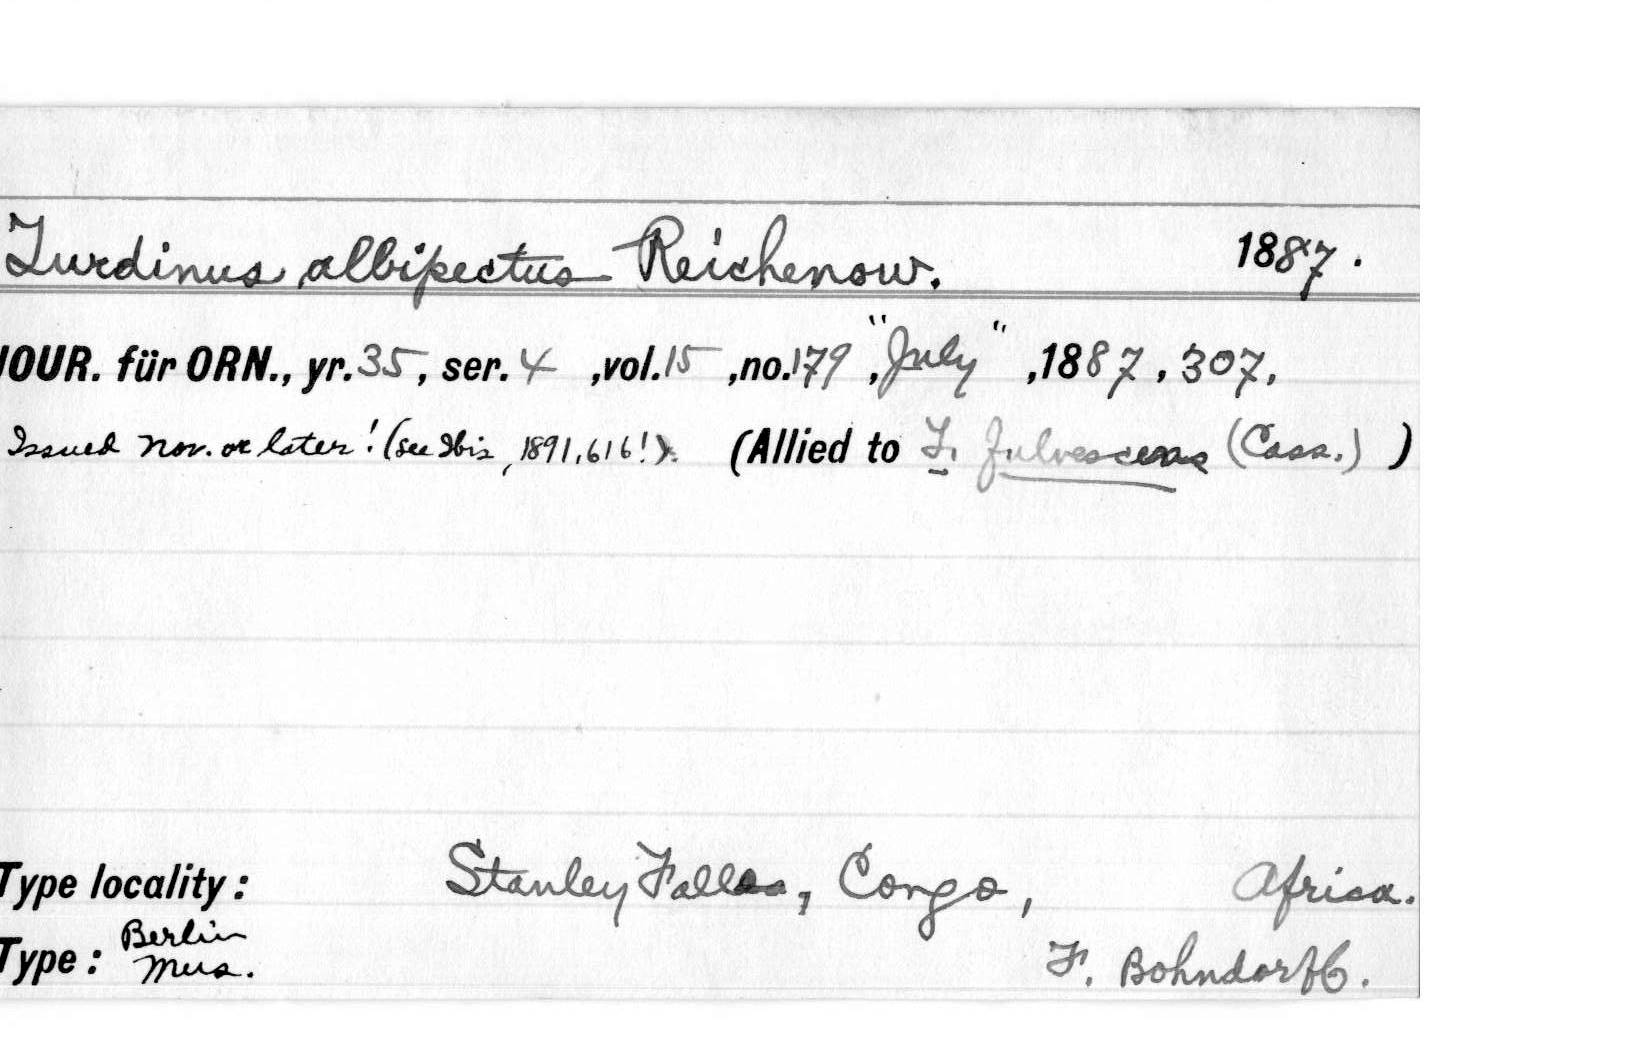 Turdinus albipectus Reichenow. 1887.
JOUR. für ORN., yr. 35, ser. 4 ,vol. 15 ,no. 179 ,"July" ,1887, 307,
Issued Nov. or later! (see Ibis, 1891, 616!). (Allied to T. fulvescens (Cass.) )
Type locality: Stanley Falls, Congo, Africa.
Type: Berlin Mus. F. Bohndorff.